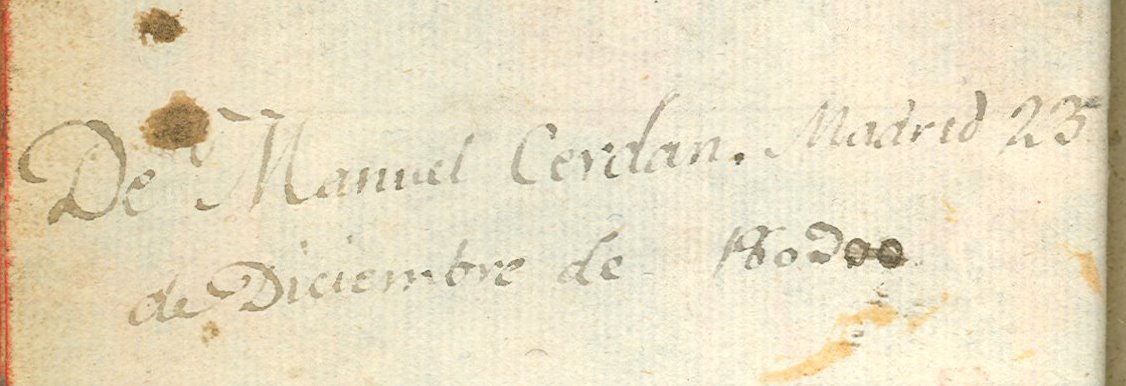 De Manuel Cerdan. Madrid 23
de Diciembre de